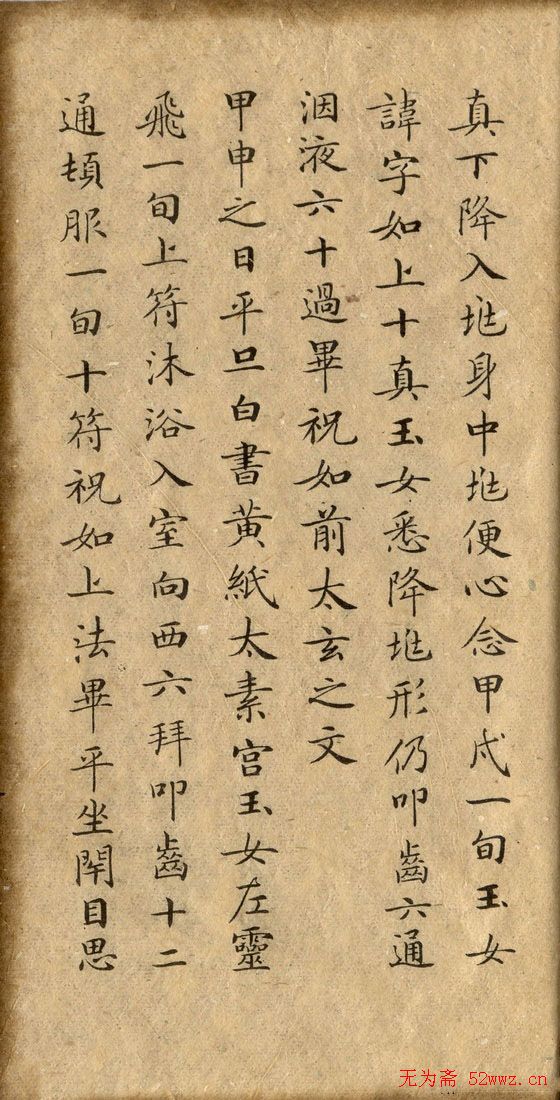 真下降入兆身中兆便心念甲戌一旬玉女
諱字如上十真玉女悉降兆形仍叩齒六通
咽液六十過畢祝如前太玄之文
甲申之日平旦白書黃紙太素宮玉女左靈
飛一旬上符沐浴入室向西六拜叩齒十二
通頓服一旬十符祝如上法畢平坐閇目思
无为斋 52wwz.cn